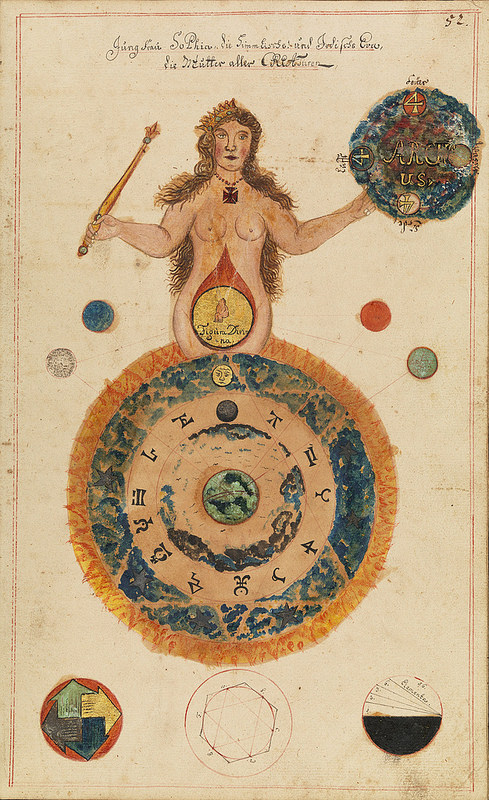 52.
Jungfrau SoPhia. die Himmlische: und Irdische Eva,
die Mütter aller CREAturen
Feüer
Lüfft
ARCH
US.
Erde
Figura Divi=
na.